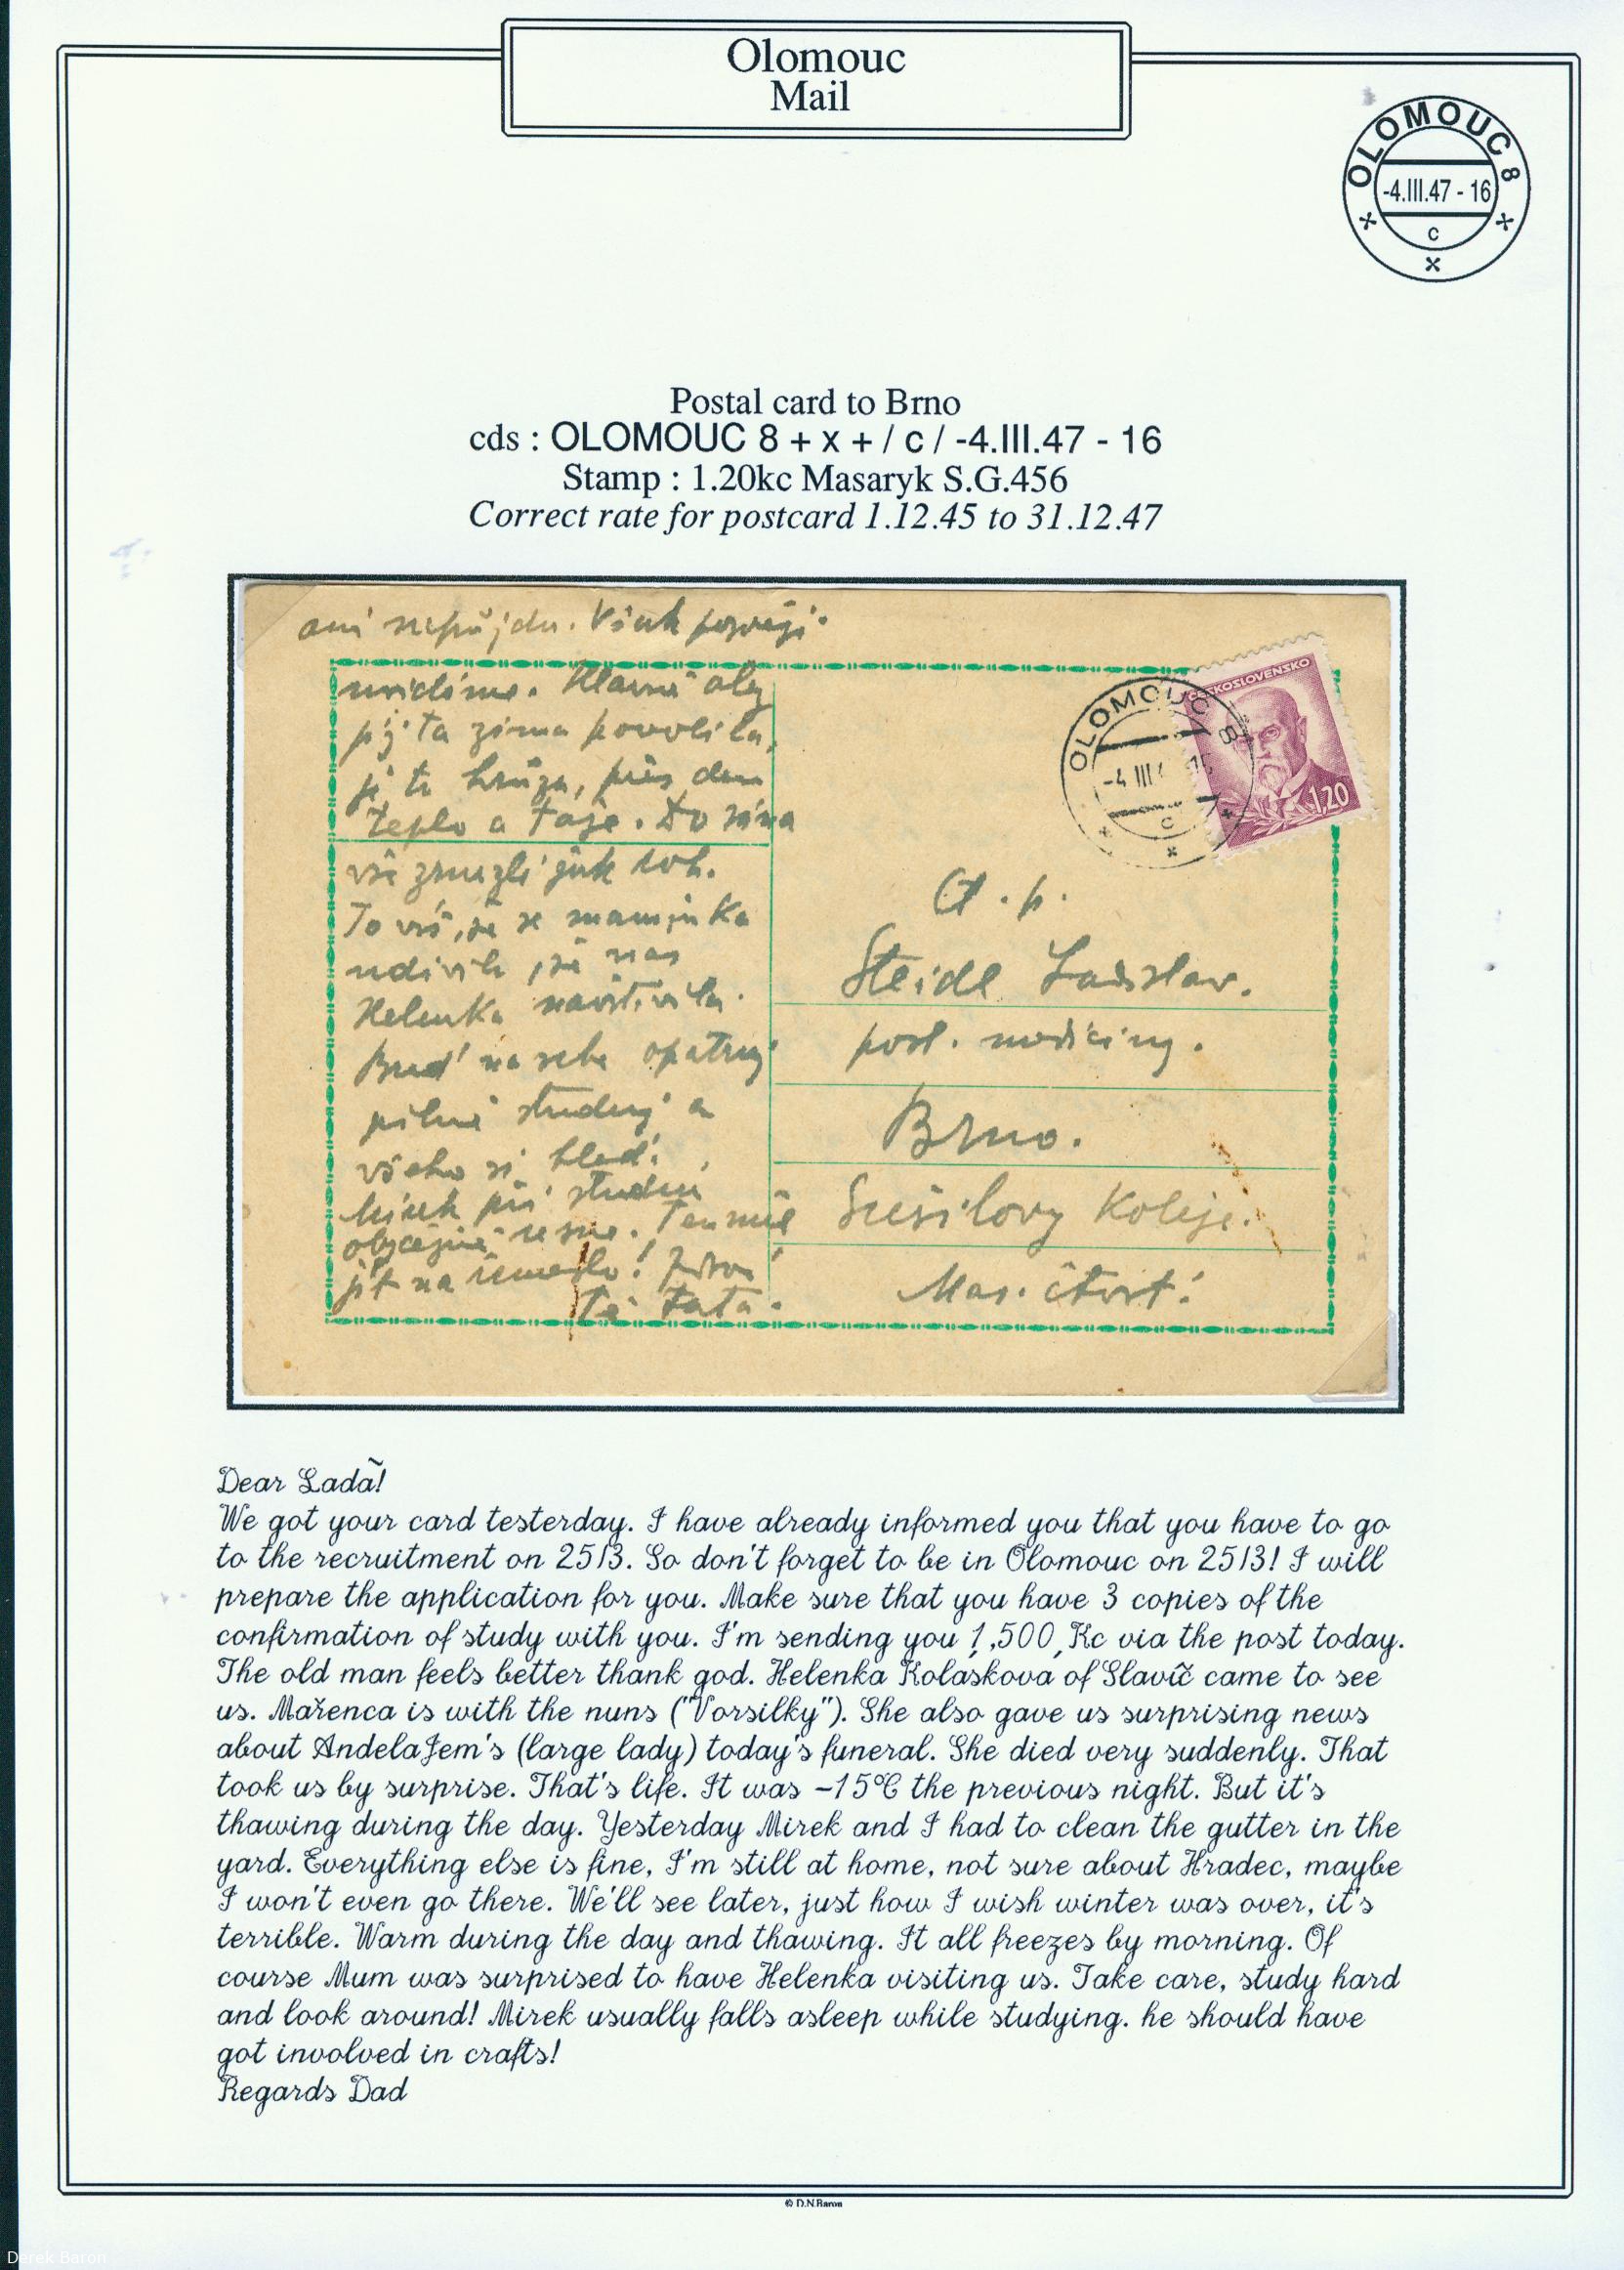 Olomouc
Mail
OLOMOUC 8
-4.III.47 - 16
c
Postal card to Brno
cds : OLOMOUC 8 + x + / c / -4.III.47 - 16
Stamp : 1.20kc Masaryk S.G.456
Correct rate for postcard 1.12.45 to 31.12.47
ani nepůjdu. Však později
uvidíme. Hlavně aby
již ta zima povolila,
je to hrůza, přes den
teplo a taje. Do rána
vše zmrzlé jak roh.
To víš, že se maminka
udivila, že nás
Helenka navštívila.
Buď na sebe opatrný
pilně studuj a
všeho si hleď!
Mirek při studiu
obyčejně usne. Ten měl
jít na řemeslo! Zdraví
Tě táta.
ČESKOSLOVENSKO
1,20
OLOMOUC 8
-4 III 4
c
Ct. p.
Steidl Ladislav.
posl. medicíny.
Brno.
Sušilovy Koleje.
Mas. čtvrť!
Dear Ladã!
We got your card testerday. I have already informed you that you have to go
to the recruitment on 25/3. So don't forget to be in Olomouc on 25/3! I will
prepare the application for you. Make sure that you have 3 copies of the
confirmation of study with you. I'm sending you 1,500 Kc via the post today.
The old man feels better thank god. Helenka Kolaskova of Slavič came to see
us. Mařenca is with the nuns ("Vorsilky"). She also gave us surprising news
about AndelaJem's (large lady) today's funeral. She died very suddenly. That
took us by surprise. That's life. It was -15°C the previous night. But it's
thawing during the day. Yesterday Mirek and I had to clean the gutter in the
yard. Everything else is fine, I'm still at home, not sure about Hradec, maybe
I won't even go there. We'll see later, just how I wish winter was over, it's
terrible. Warm during the day and thawing. It all freezes by morning. Of
course Mum was surprised to have Helenka visiting us. Take care, study hard
and look around! Mirek usually falls asleep while studying. he should have
got involved in crafts!
Regards Dad
© D.N.Baron
Derek Baron